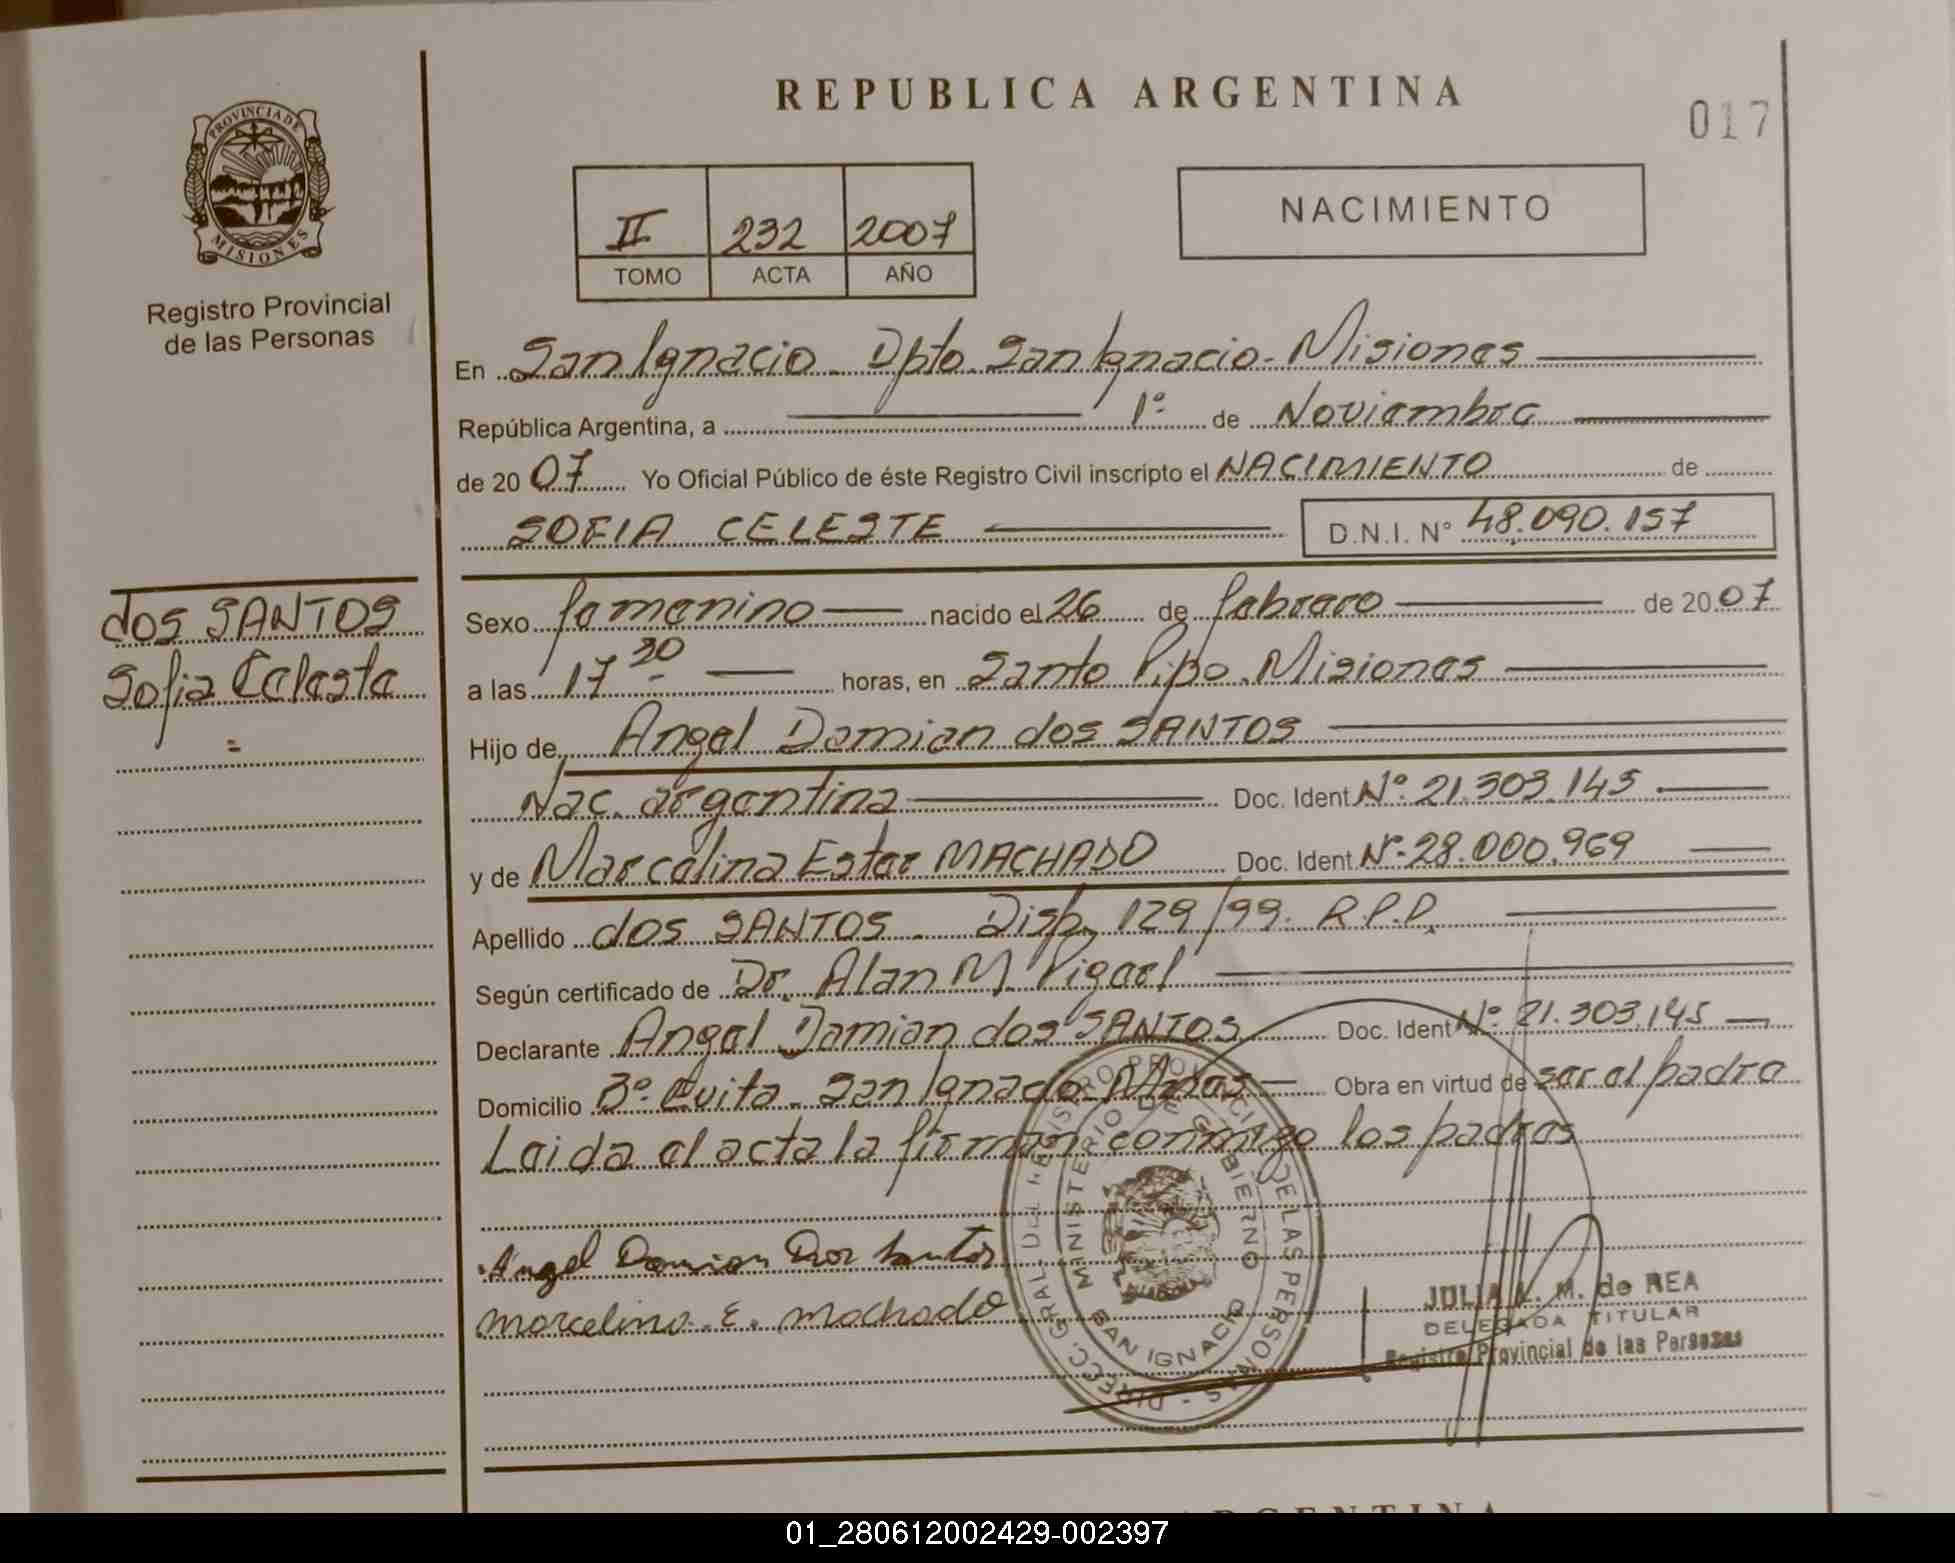 REPUBLICA ARGENTINA
017
PROVINCIA DE
MISIONES
Registro Provincial
de las Personas
II 232 2007
TOMO ACTA AÑO
NACIMIENTO
En San Ignacio - Dpto. San Ignacio - Misiones
República Argentina, a 1º de Noviembre
de 2007 Yo Oficial Público de éste Registro Civil inscripto el NACIMIENTO de
SOFIA CELESTE D.N.I. Nº 48.090.157
dos SANTOS
Sofia Celeste
Sexo femenino nacido el 26 de febrero de 2007
a las 17 30 horas, en Santo Pipo - Misiones
Hijo de Angel Damian dos SANTOS
Nac. argentina Doc. Ident Nº 21.303.145
y de Marcelina Ester MACHADO Doc. Ident. Nº 28.000.969
Apellido dos SANTOS - Disp. 129/99. R.P.P.
Según certificado de Dr. Alan M.
Declarante Angel Damian dos SANTOS Doc. Ident Nº 21.303.145
Domicilio Bº Evita - San Ignacio - Mnes Obra en virtud de ser el padre
Leida el acta la firman conmigo los padres
Angel Damian Dos Santos
Marcelina. E. Machado
DIREC. GRAL. DEL REGISTRO PROVINCIAL DE LAS PERSONAS -
MINISTERIO DE GOBIERNO
SAN IGNACIO
JULIA M. de REA
DELEGADA TITULAR
Registro Provincial de las Personas
ARGENTINA
01_280612002429-002397